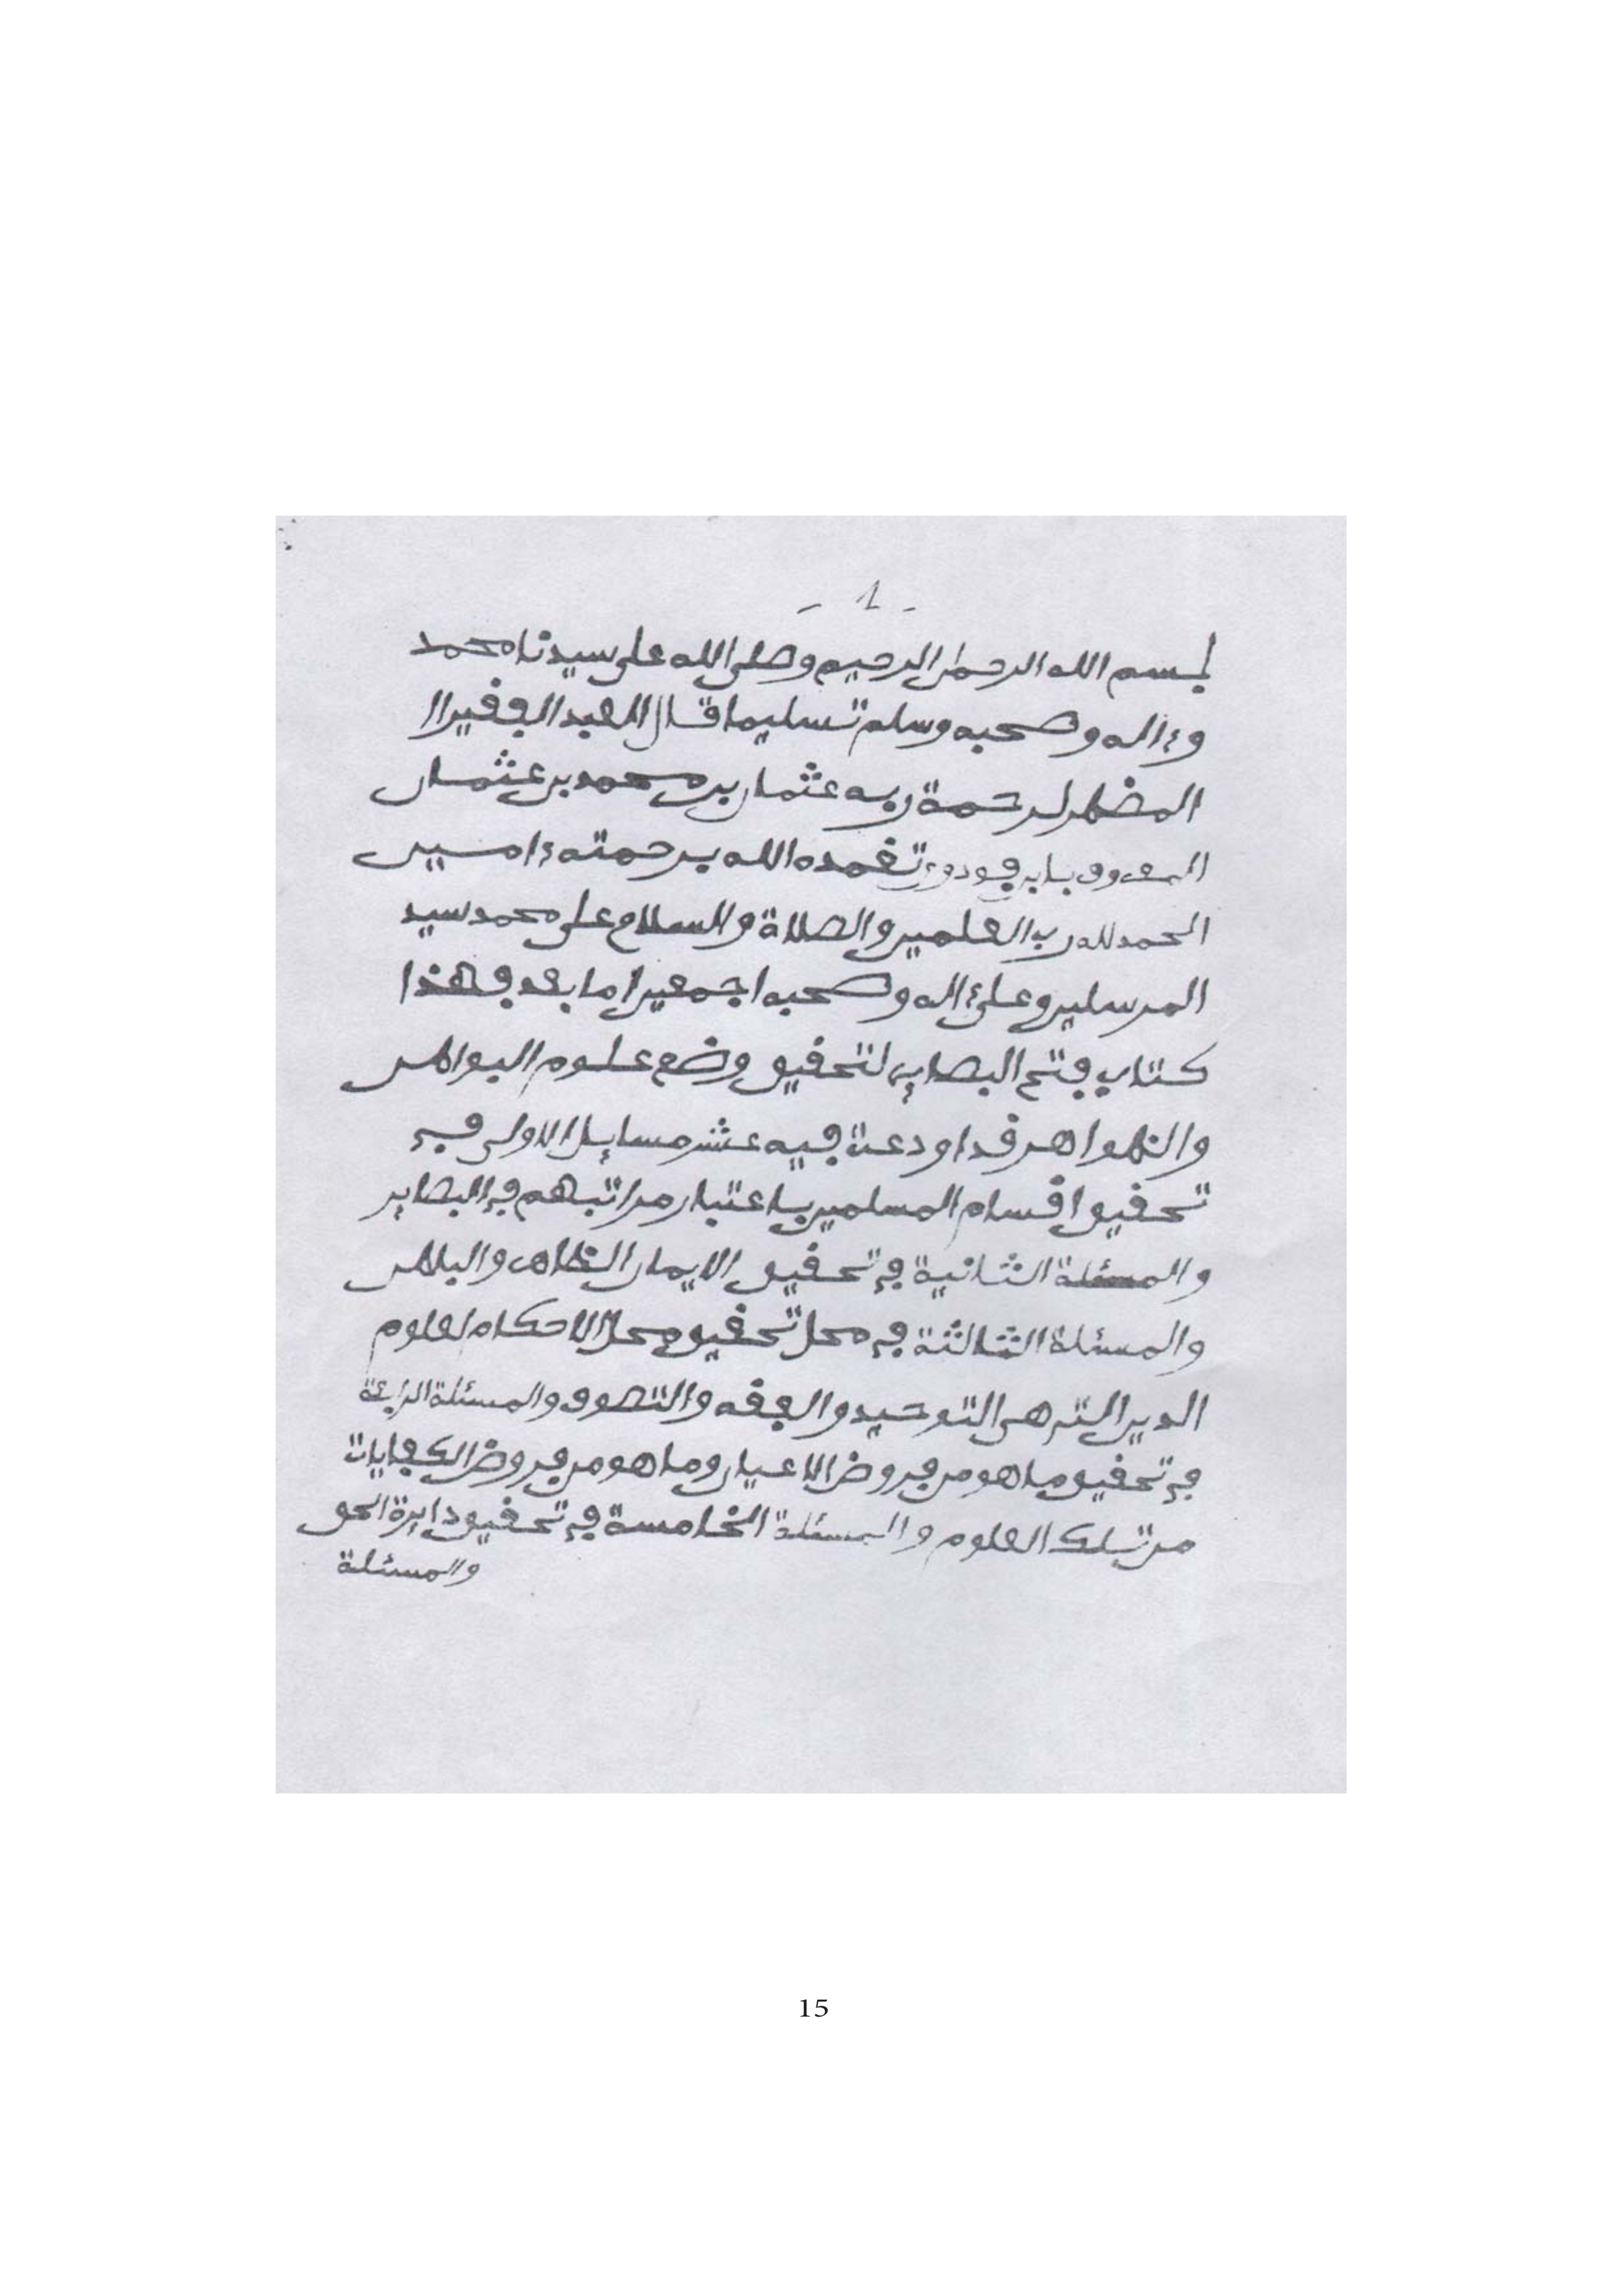 - 1 -
بسم الله الرحمن الرحيم وصلى الله على سيدنا محمد
وءاله وصحبه وسلم تسليما قال العبد الفقير ا
المضطر لرحمة ربه عثمان بن محمد بن عثمان
المعروف بابن فودو تغمده الله برحمته ءامين
الحمد لله رب العلمين والصلاة والسلام على محمد سيد
المرسلين وعلى ءاله وصحبه اجمعين اما بعد فهذا
كتاب فتح البصاير لتحقيق وضع علوم البواطن
والظواهر قد اودعت فيه عشر مسايل الاولى في
تحقيق اقسام المسلمين باعتبار مراتبهم في البصاير
والمسئلة الثانية في تحقيق الايمان الظاهر والباطن
والمسئلة الثالثة في محل تحقيق محل الاحكام لعلوم
الدين التي هي التوحيد والفقه والتصوف والمسئلة الرابعة
في تحقيق ما هو من فروض الاعيان وما هو من فروض الكفايات
من تلك العلوم والمسئلة الخامسة في تحقيق دايرة الحق
والمسئلة
15